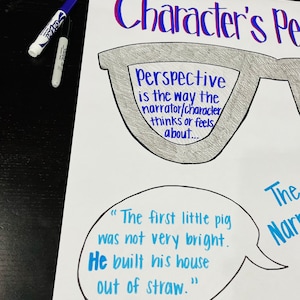 Character's Pe
Perspective
is the way the
narrator/character
thinks or feels
about...
The
Narr
"The first little pig
was not very bright.
He built his house
out of straw."